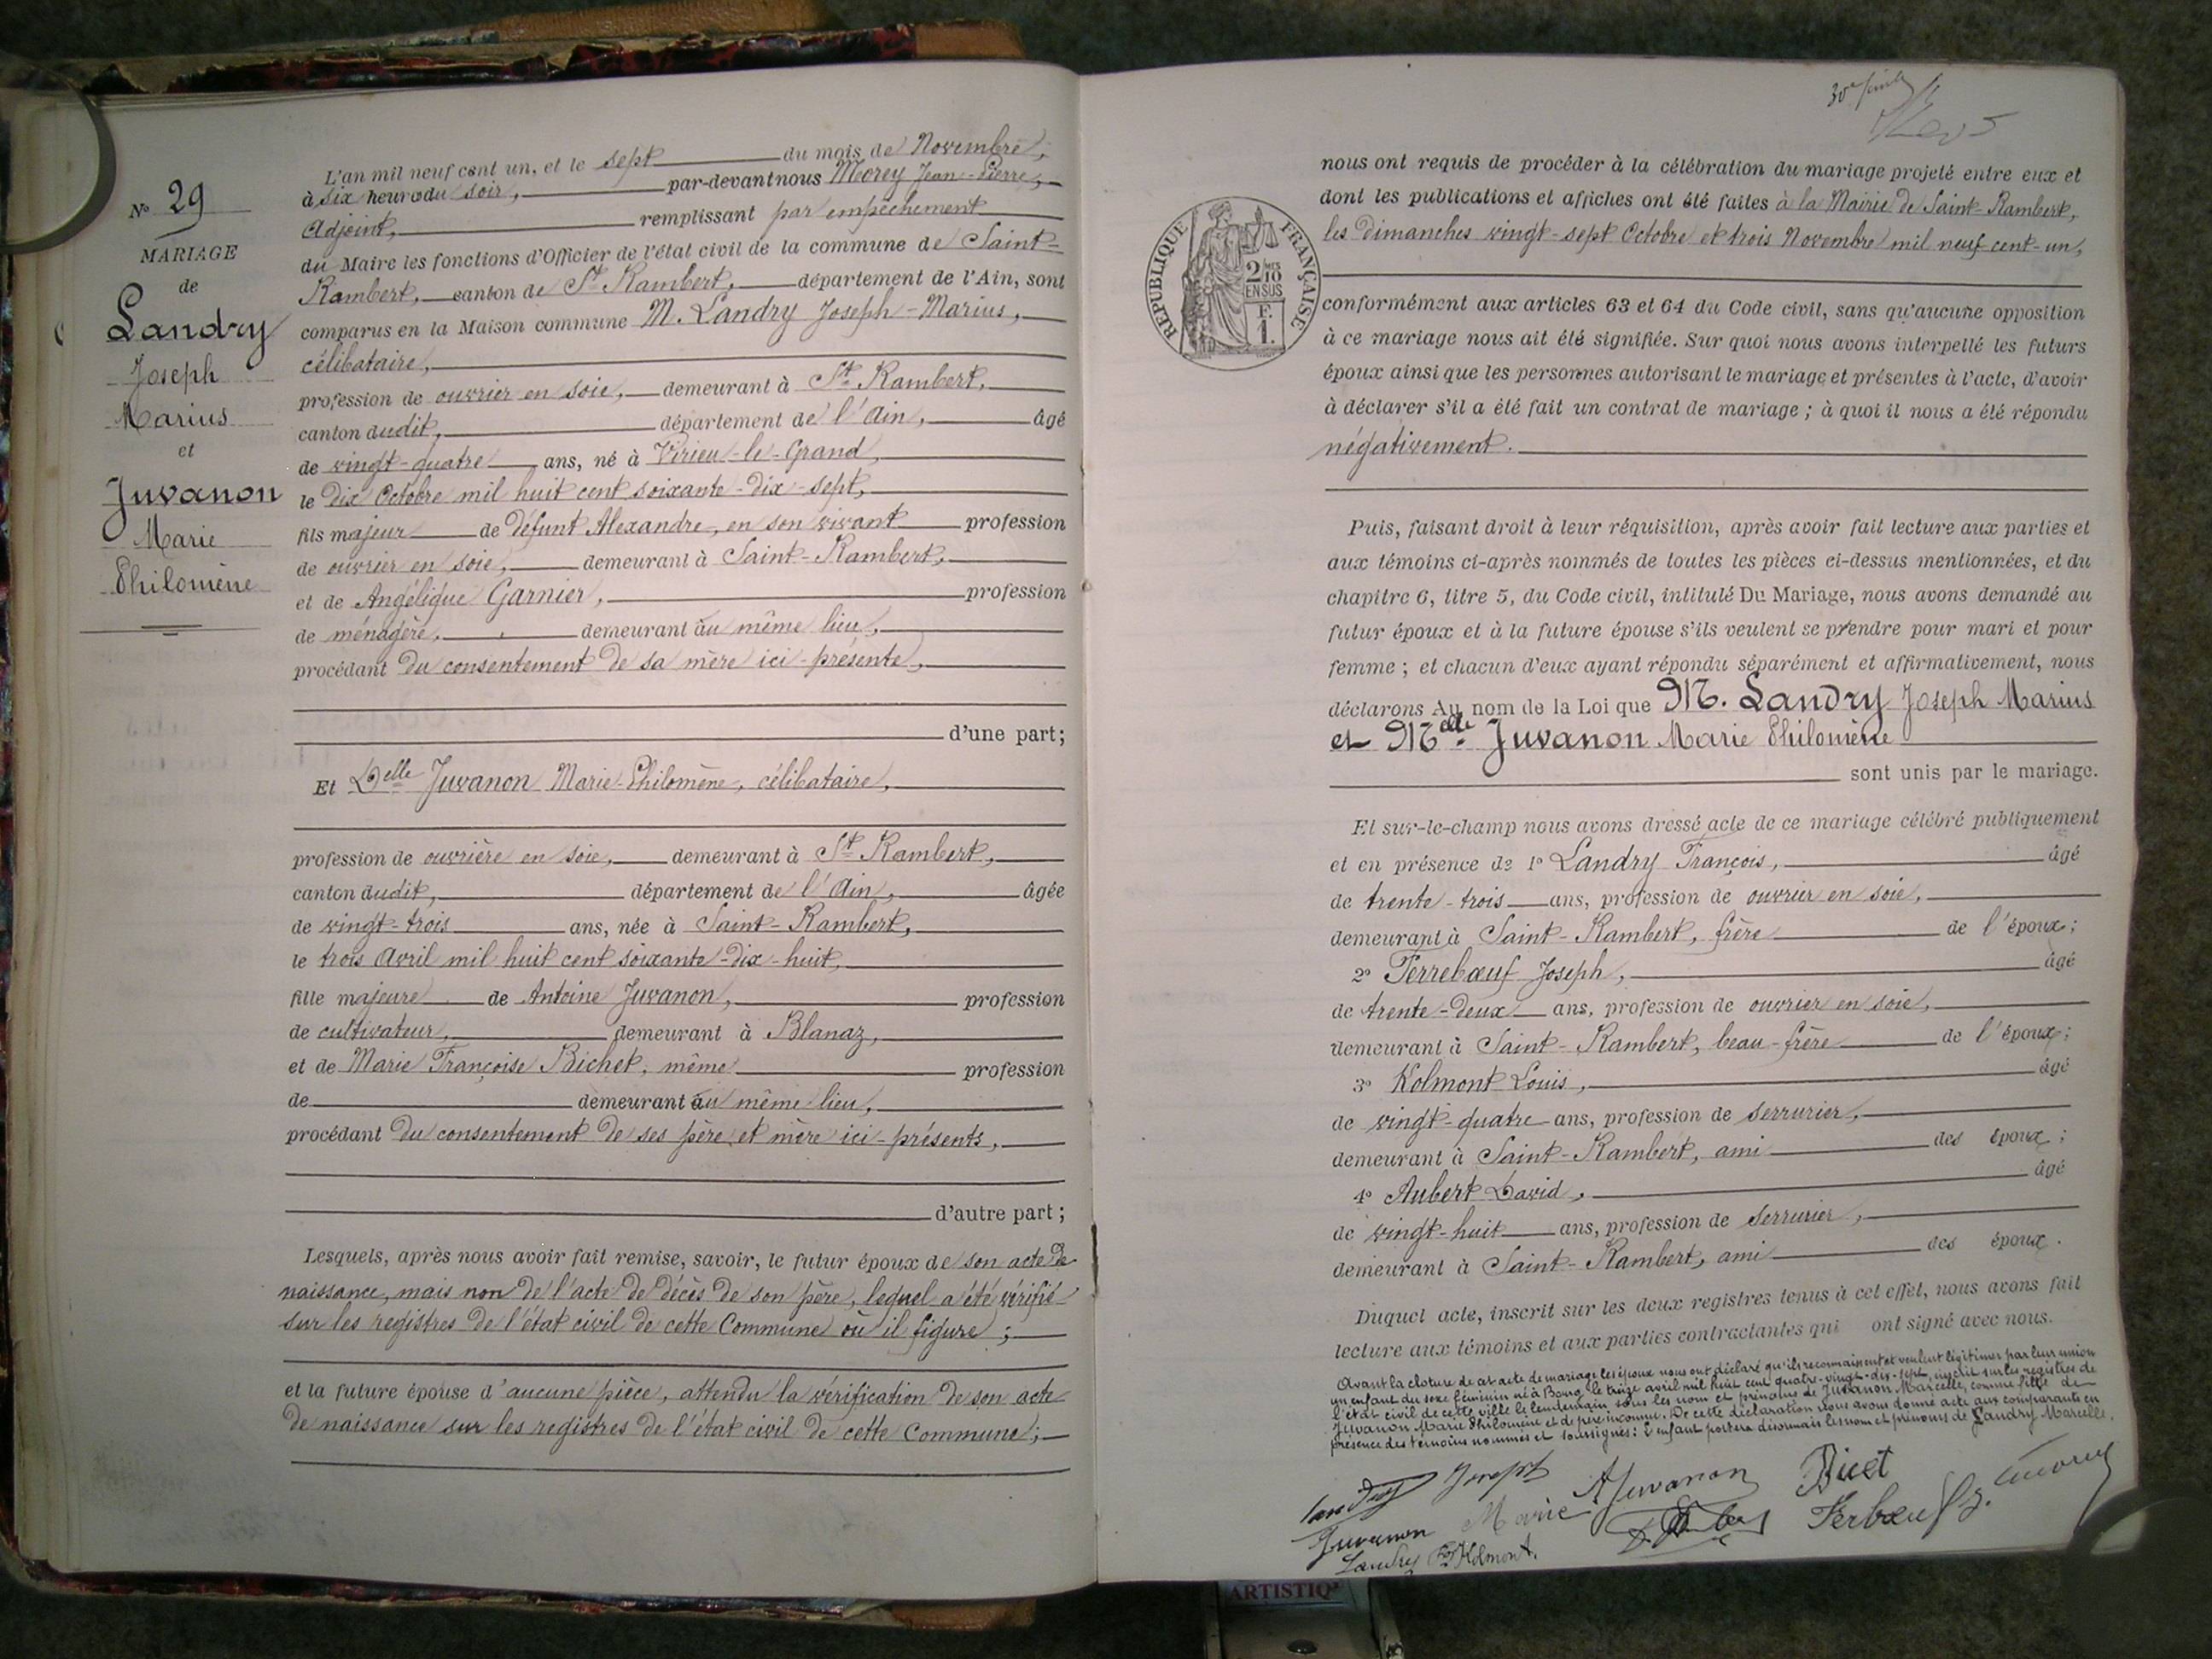 N° 29
MARIAGE
de
Landry
Joseph
Marius
et
Juvanon
Marie
Philomène
L'an mil neuf cent un, et le sept du mois de Novembre,
à six heures du soir, par-devant nous Morey Jean-Pierre,
Adjoint, remplissant par empêchement
du Maire les fonctions d'Officier de l'état civil de la commune de Saint-
Rambert, canton de St Rambert, département de l'Ain, sont
comparus en la Maison commune M. Landry Joseph-Marius,
célibataire,
profession de ouvrier en soie, demeurant à St Rambert,
canton dudit, département de l'Ain, âgé
de vingt-quatre ans, né à Virieu-le-Grand,
le dix Octobre mil huit cent soixante-dix-sept,
fils majeur de défunt Alexandre, en son vivant profession
de ouvrier en soie, demeurant à Saint-Rambert,
et de Angélique Garnier, profession
de ménagère, demeurant au même lieu,
procédant du consentement de sa mère ici-présente,
d'une part;
Et Delle Juvanon Marie-Philomène, célibataire,
profession de ouvrière en soie, demeurant à St Rambert,
canton dudit, département de l'Ain, âgée
de vingt-trois ans, née à Saint-Rambert,
le trois Avril mil huit cent soixante-dix-huit,
fille majeure de Antoine Juvanon, profession
de cultivateur, demeurant à Blanaz,
et de Marie Françoise Bichet, même profession
de demeurant au même lieu,
procédant du consentement de ses père et mère ici-présents,
d'autre part;
Lesquels, après nous avoir fait remise, savoir, le futur époux de son acte de
naissance, mais non de l'acte de décès de son père, lequel a été vérifié
sur les registres de l'état civil de cette Commune où il figure;
et la future épouse d'aucune pièce, attendu la vérification de son acte
de naissance sur les registres de l'état civil de cette Commune;
RÉPUBLIQUE FRANÇAISE
2/10 MES
EN SUS
F.
1.
nous ont requis de procéder à la célébration du mariage projeté entre eux et
dont les publications et affiches ont été faites à la Mairie de Saint-Rambert,
les dimanches vingt-sept Octobre et trois Novembre mil neuf cent-un,
conformément aux articles 63 et 64 du Code civil, sans qu'aucune opposition
à ce mariage nous ait été signifiée. Sur quoi nous avons interpellé les futurs
époux ainsi que les personnes autorisant le mariage et présentes à l'acte, d'avoir
à déclarer s'il a été fait un contrat de mariage; à quoi il nous a été répondu
négativement.
Puis, faisant droit à leur réquisition, après avoir fait lecture aux parties et
aux témoins ci-après nommés de toutes les pièces ci-dessus mentionnées, et du
chapitre 6, titre 5, du Code civil, intitulé Du Mariage, nous avons demandé au
futur époux et à la future épouse s'ils veulent se prendre pour mari et pour
femme; et chacun d'eux ayant répondu séparément et affirmativement, nous
déclarons Au nom de la Loi que M. Landry Joseph Marius
et Melle Juvanon Marie Philomène
sont unis par le mariage.
Et sur-le-champ nous avons dressé acte de ce mariage célébré publiquement
et en présence de 1° Landry François, âgé
de trente-trois ans, profession de ouvrier en soie,
demeurant à Saint-Rambert, frère de l'époux;
2° Terrebœuf Joseph, âgé
de trente-deux ans, profession de ouvrier en soie,
demeurant à Saint-Rambert, beau-frère de l'époux;
3° Kolmont Louis, âgé
de vingt-quatre ans, profession de serrurier,
demeurant à Saint-Rambert, ami des époux;
4° Aubert David, âgé
de vingt-huit ans, profession de serrurier,
demeurant à Saint-Rambert, ami des époux.
Duquel acte, inscrit sur les deux registres tenus à cet effet, nous avons fait
lecture aux témoins et aux parties contractantes qui ont signé avec nous.
Avant la cloture de cet acte de mariage les époux nous ont déclaré qu'ils reconnaissent et veulent légitimer par leur union
un enfant du sexe féminin né à Bourg le treize avril mil huit cent quatre-vingt-dix-sept, inscrit sur les registres de
l'état civil de cette ville le lendemain sous les nom et prénoms de Juvanon Marcelle, comme fille de
Juvanon Marie Philomène et de père inconnu. De cette déclaration nous avons donné acte aux comparants en
présence des témoins nommés et soussignés: L'enfant portera désormais les nom et prénoms de Landry Marcelle.
Landry Joseph AJuvanon Bicet
Juvanon Marie Terbœuf
Landry Fois Kolmont.
ARTISTIQ